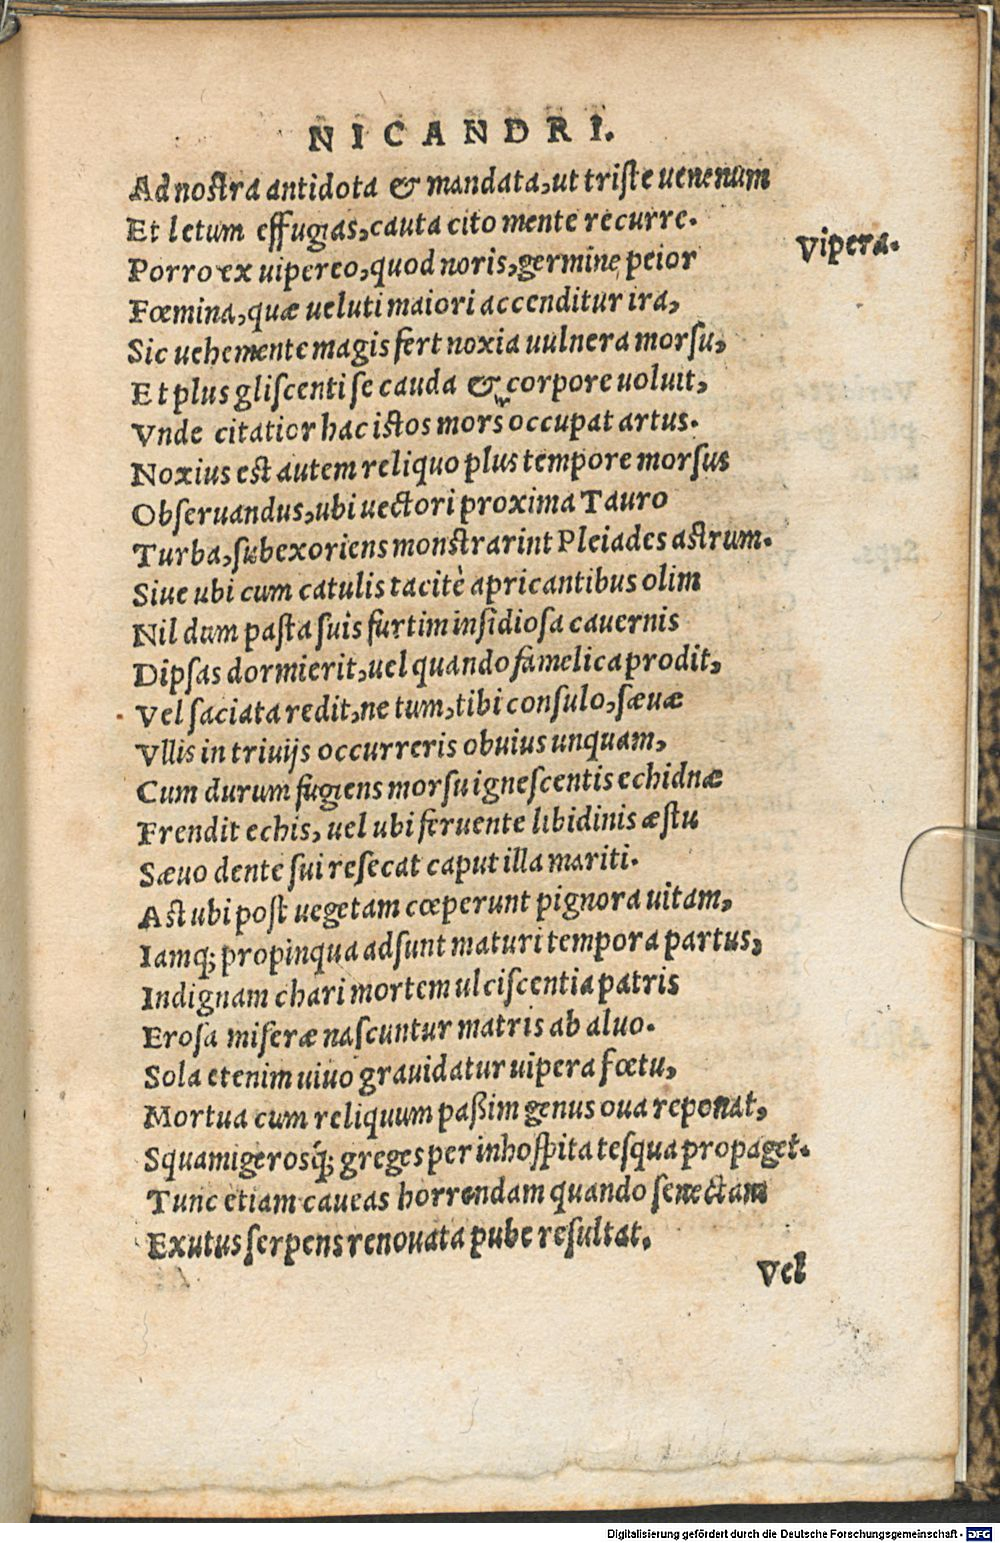 NICANDRI.
Ad nostra antidota & mandata, ut triste uenenum
Et letum effugias, cauta cito mente recurre.
Vipera.
Porro ex uipereo, quod noris, germine, peior
Fœmina, quæ ueluti maiori accenditur ira,
Sic uehemente magis fert noxia uulnera morsu,
Et plus gliscenti se cauda & corpore uoluit,
Vnde citatior hac istos mors occupat artus.
Noxius est autem reliquo plus tempore morsus
Obseruandus, ubi uectori proxima Tauro
Turba, subexoriens monstrarint Pleiades astrum.
Siue ubi cum catulis tacitè apricantibus olim
Nil dum pasta suis furtim insidiosa cauernis
Dipsas dormierit, uel quando famelica prodit,
Vel saciata redit, ne tum, tibi consulo, sæuæ
Vllis in triuijs occurreris obuius unquam,
Cum durum fugiens morsu ignescentis echidnæ
Frendit echis, uel ubi feruente libidinis æstu
Sæuo dente sui resecat caput illa mariti.
Ast ubi post uegetam cœperunt pignora uitam,
Iamq; propinqua adsunt maturi tempora partus,
Indignam chari mortem ulciscentia patris
Erosa miseræ nascuntur matris ab aluo.
Sola etenim uiuo grauidatur uipera fœtu,
Mortua cum reliquum paßim genus oua reponat,
Squamigerosq́; greges per inhospita tesqua propaget.
Tunc etiam caueas horrendam quando senectam
Exutus serpens renouata pube resultat.
Vel
Digitalisierung gefördert durch die Deutsche Forschungsgemeinschaft - DFG